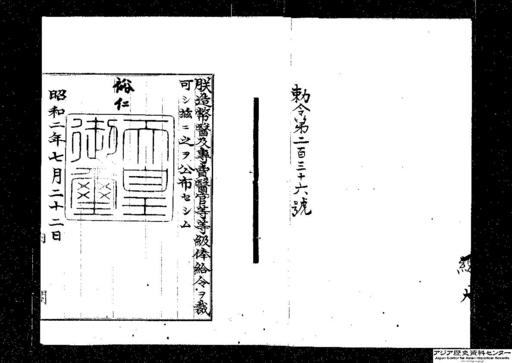 勅令第二百三十六號
朕造幣醫及專賣醫官等等級俸給令ヲ裁
可シ茲ニ之ヲ公布セシム
裕仁
天皇御璽
昭和二年七月二十二日
アジア歴史資料センター
Japan Center for Asian Historical Records